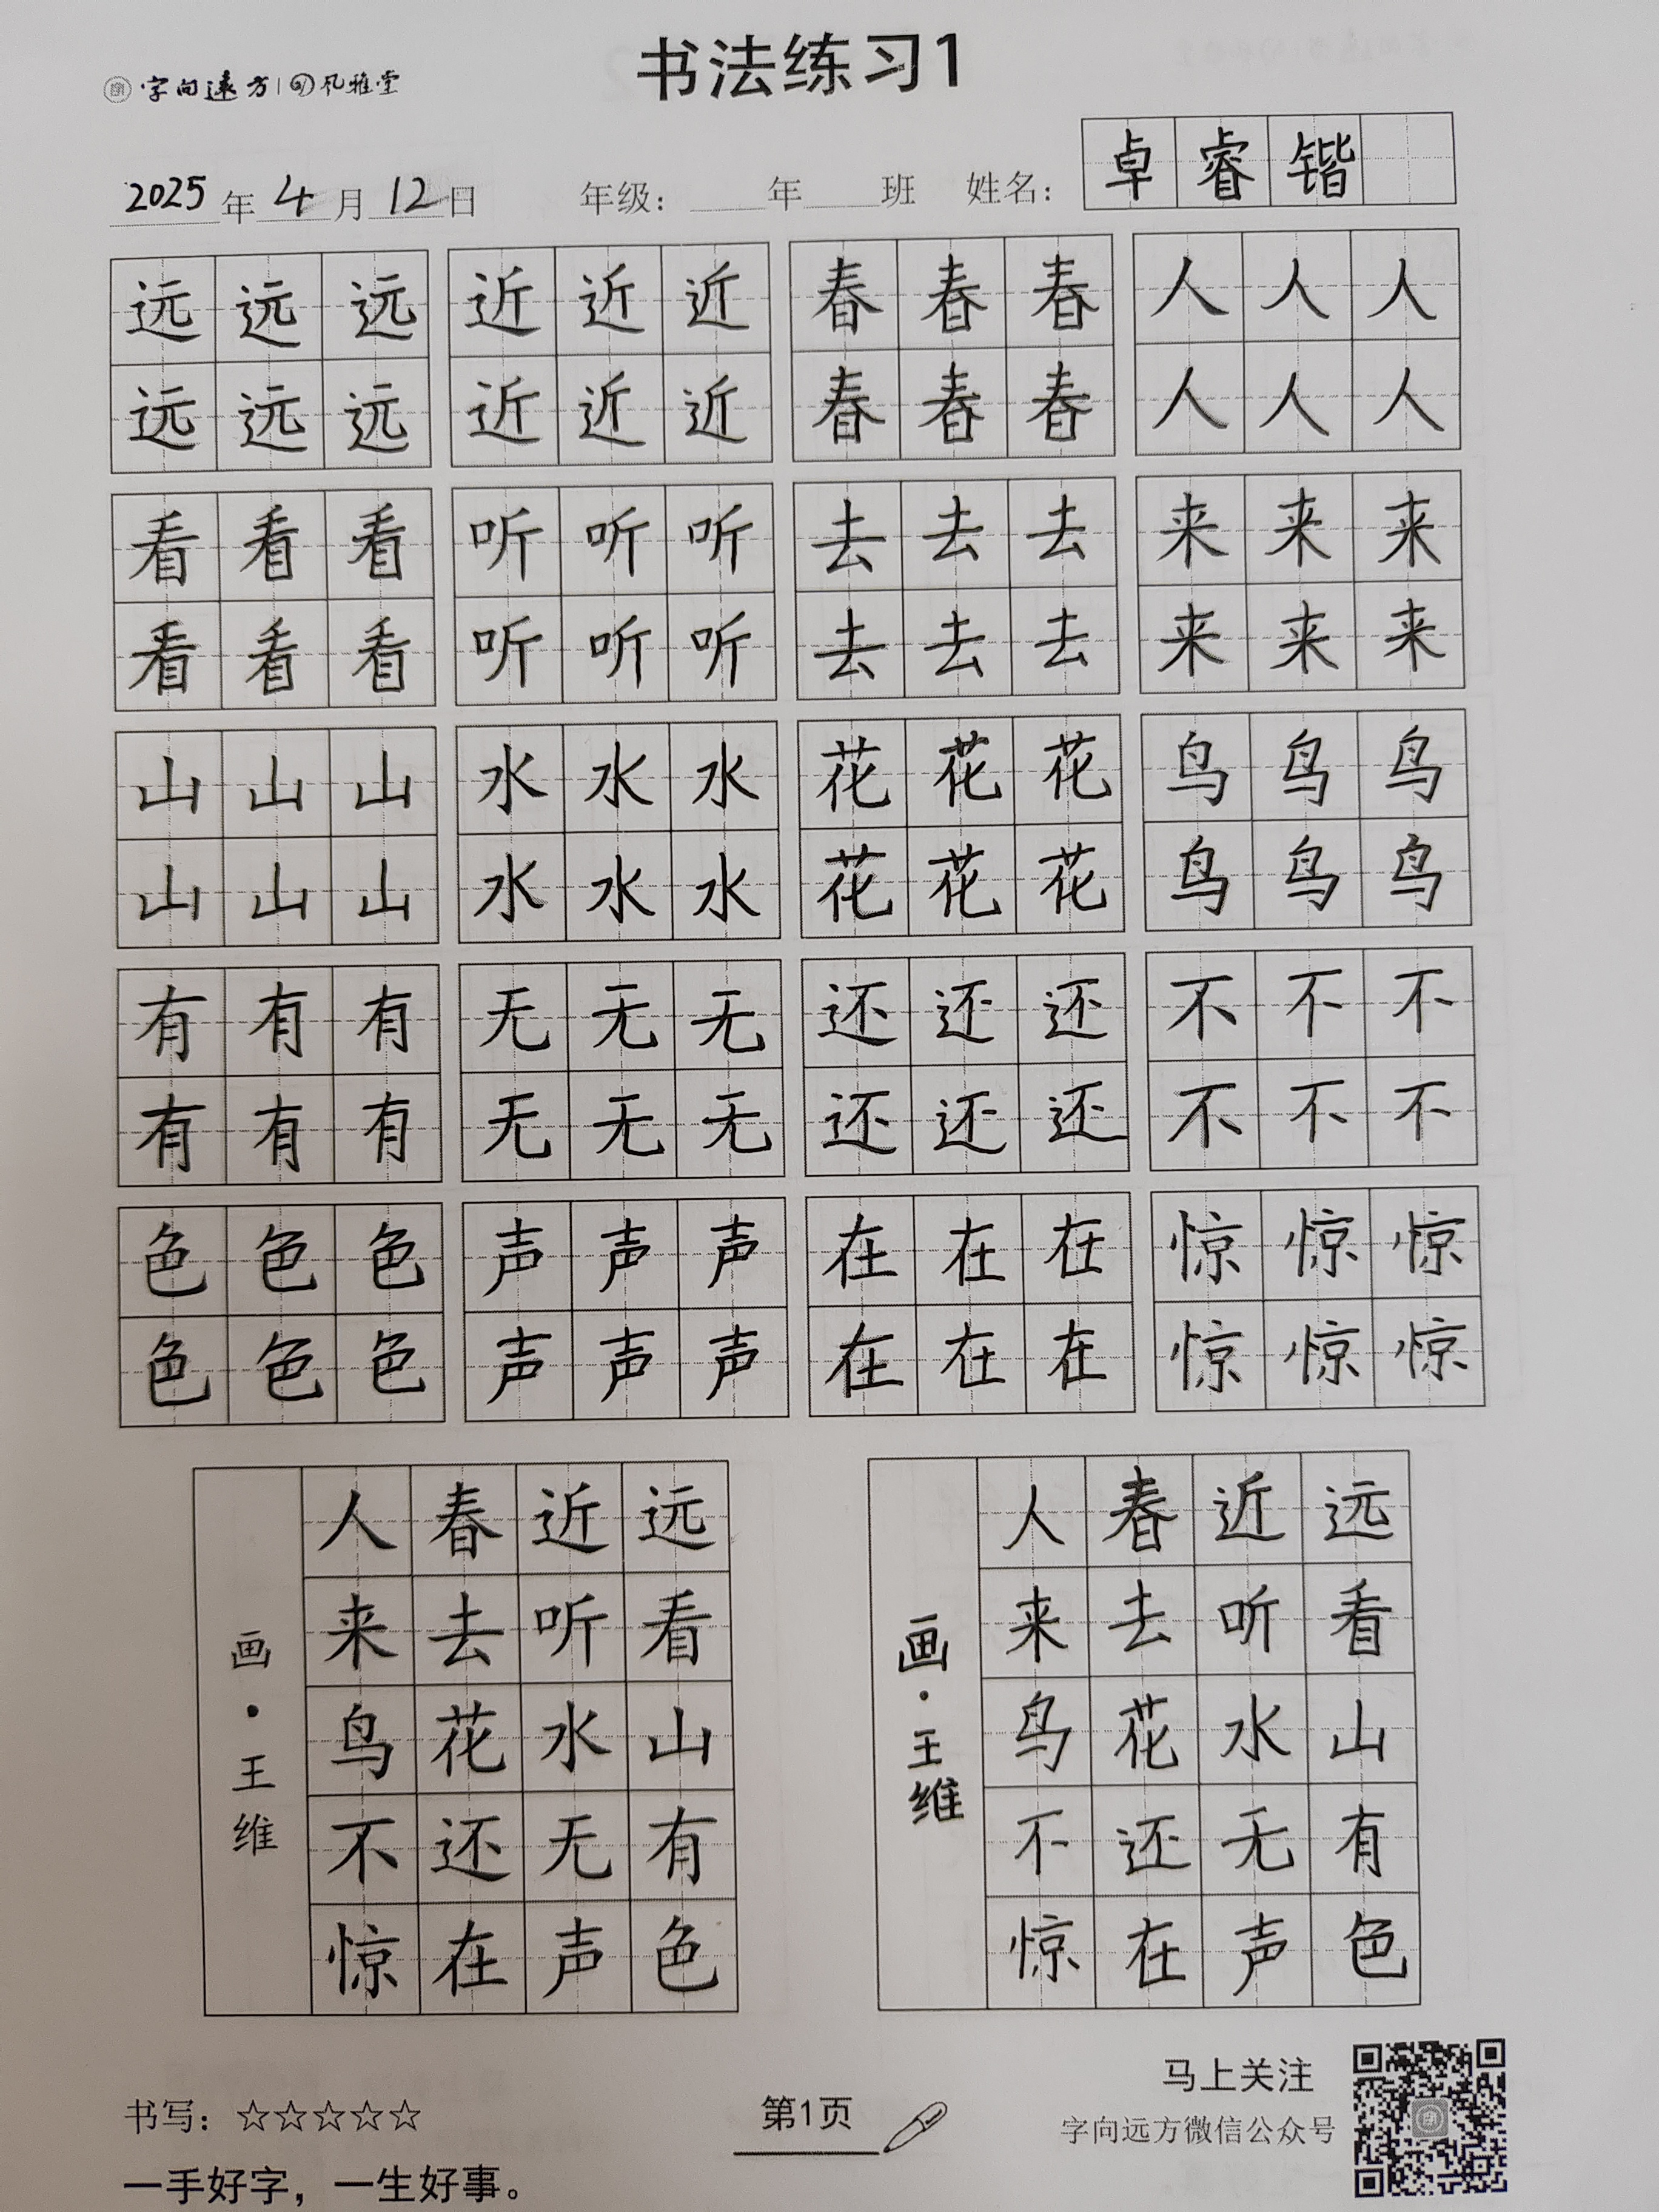 书法练习1
字向远方 风雅堂
卓睿锴
2025年4月12日 年级：____年____班 姓名：
远远远 近近近 春春春 人人人
远远远 近近近 春春春 人人人
看看看 听听听 去去去 来来来
看看看 听听听 去去去 来来来
山山山 水水水 花花花 鸟鸟鸟
山山山 水水水 花花花 鸟鸟鸟
有有有 无无无 还还还 不不不
有有有 无无无 还还还 不不不
色色色 声声声 在在在 惊惊惊
色色色 声声声 在在在 惊惊惊
远看山有色
近听水无声
春去花还在
人来鸟不惊
画·王维
远看山有色
近听水无声
春去花还在
人来鸟不惊
画·王维
书写：☆☆☆☆☆
一手好字，一生好事。
第1页
马上关注
字向远方微信公众号